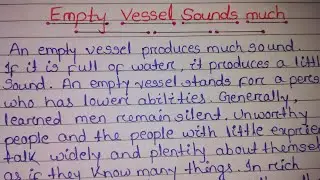 Empty Vessel Sounds much
An empty vessel produces much sound.
If it is full of water, it produces a little
sound. An empty vessel stands for a pers
who has lower abilities. Generally,
learned men remain silent. Unworthy
people and the people with little exprien
talk widely and plentity about themse
as if they know many things. In rich